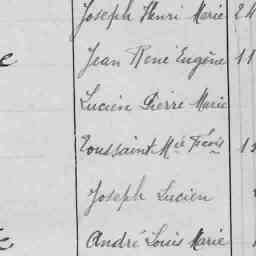 Joseph Henri Marie 24
Jean René Eugène 11
Lucien Pierre Marie
Toussaint Mie Frçois 1
Joseph Lucien
André Louis Marie